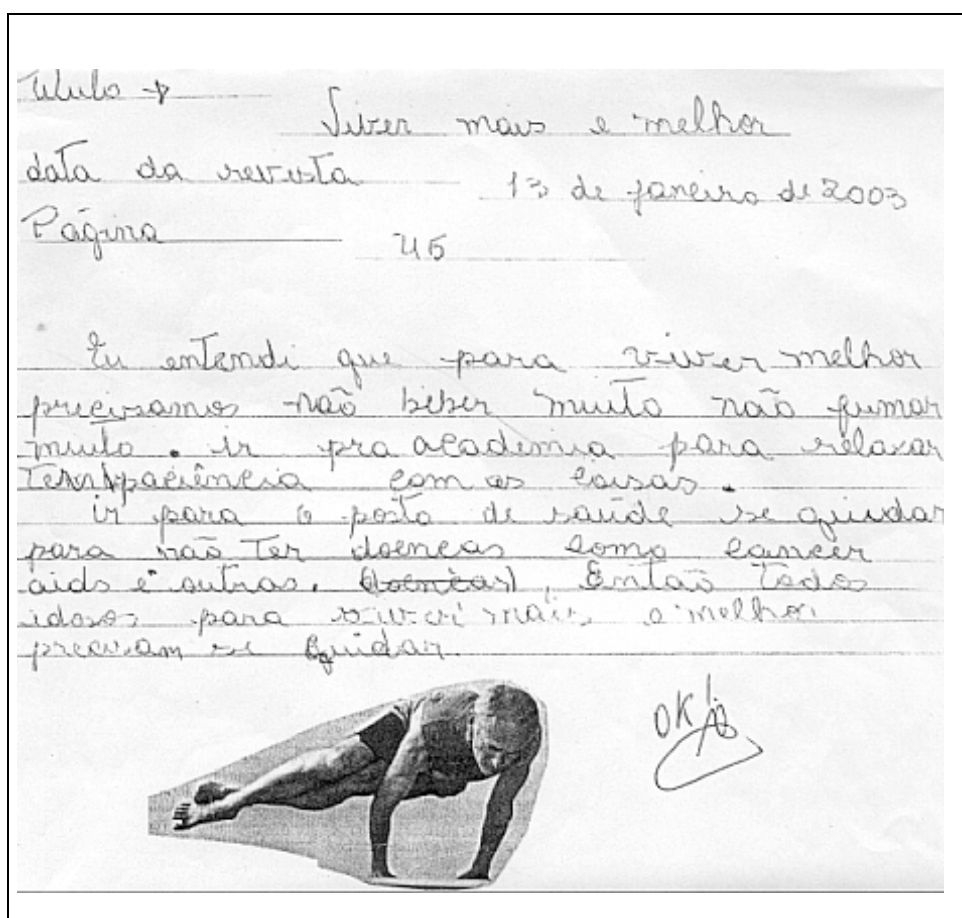 Titulo →
Viver mais e melhor
data da revista 13 de janeiro de 2003
Página 45
Eu entendi que para viver melhor
precisamos não beber muito não fumar
muito. ir pra academia para relaxar
Ter paciência com as coisas.
ir para o posto de saúde se quidar
para não Ter doencas como cancer
aids e outras. (doencas). Então Todos
idosos para viver mais e melhor
precisam se quidar.
OK!